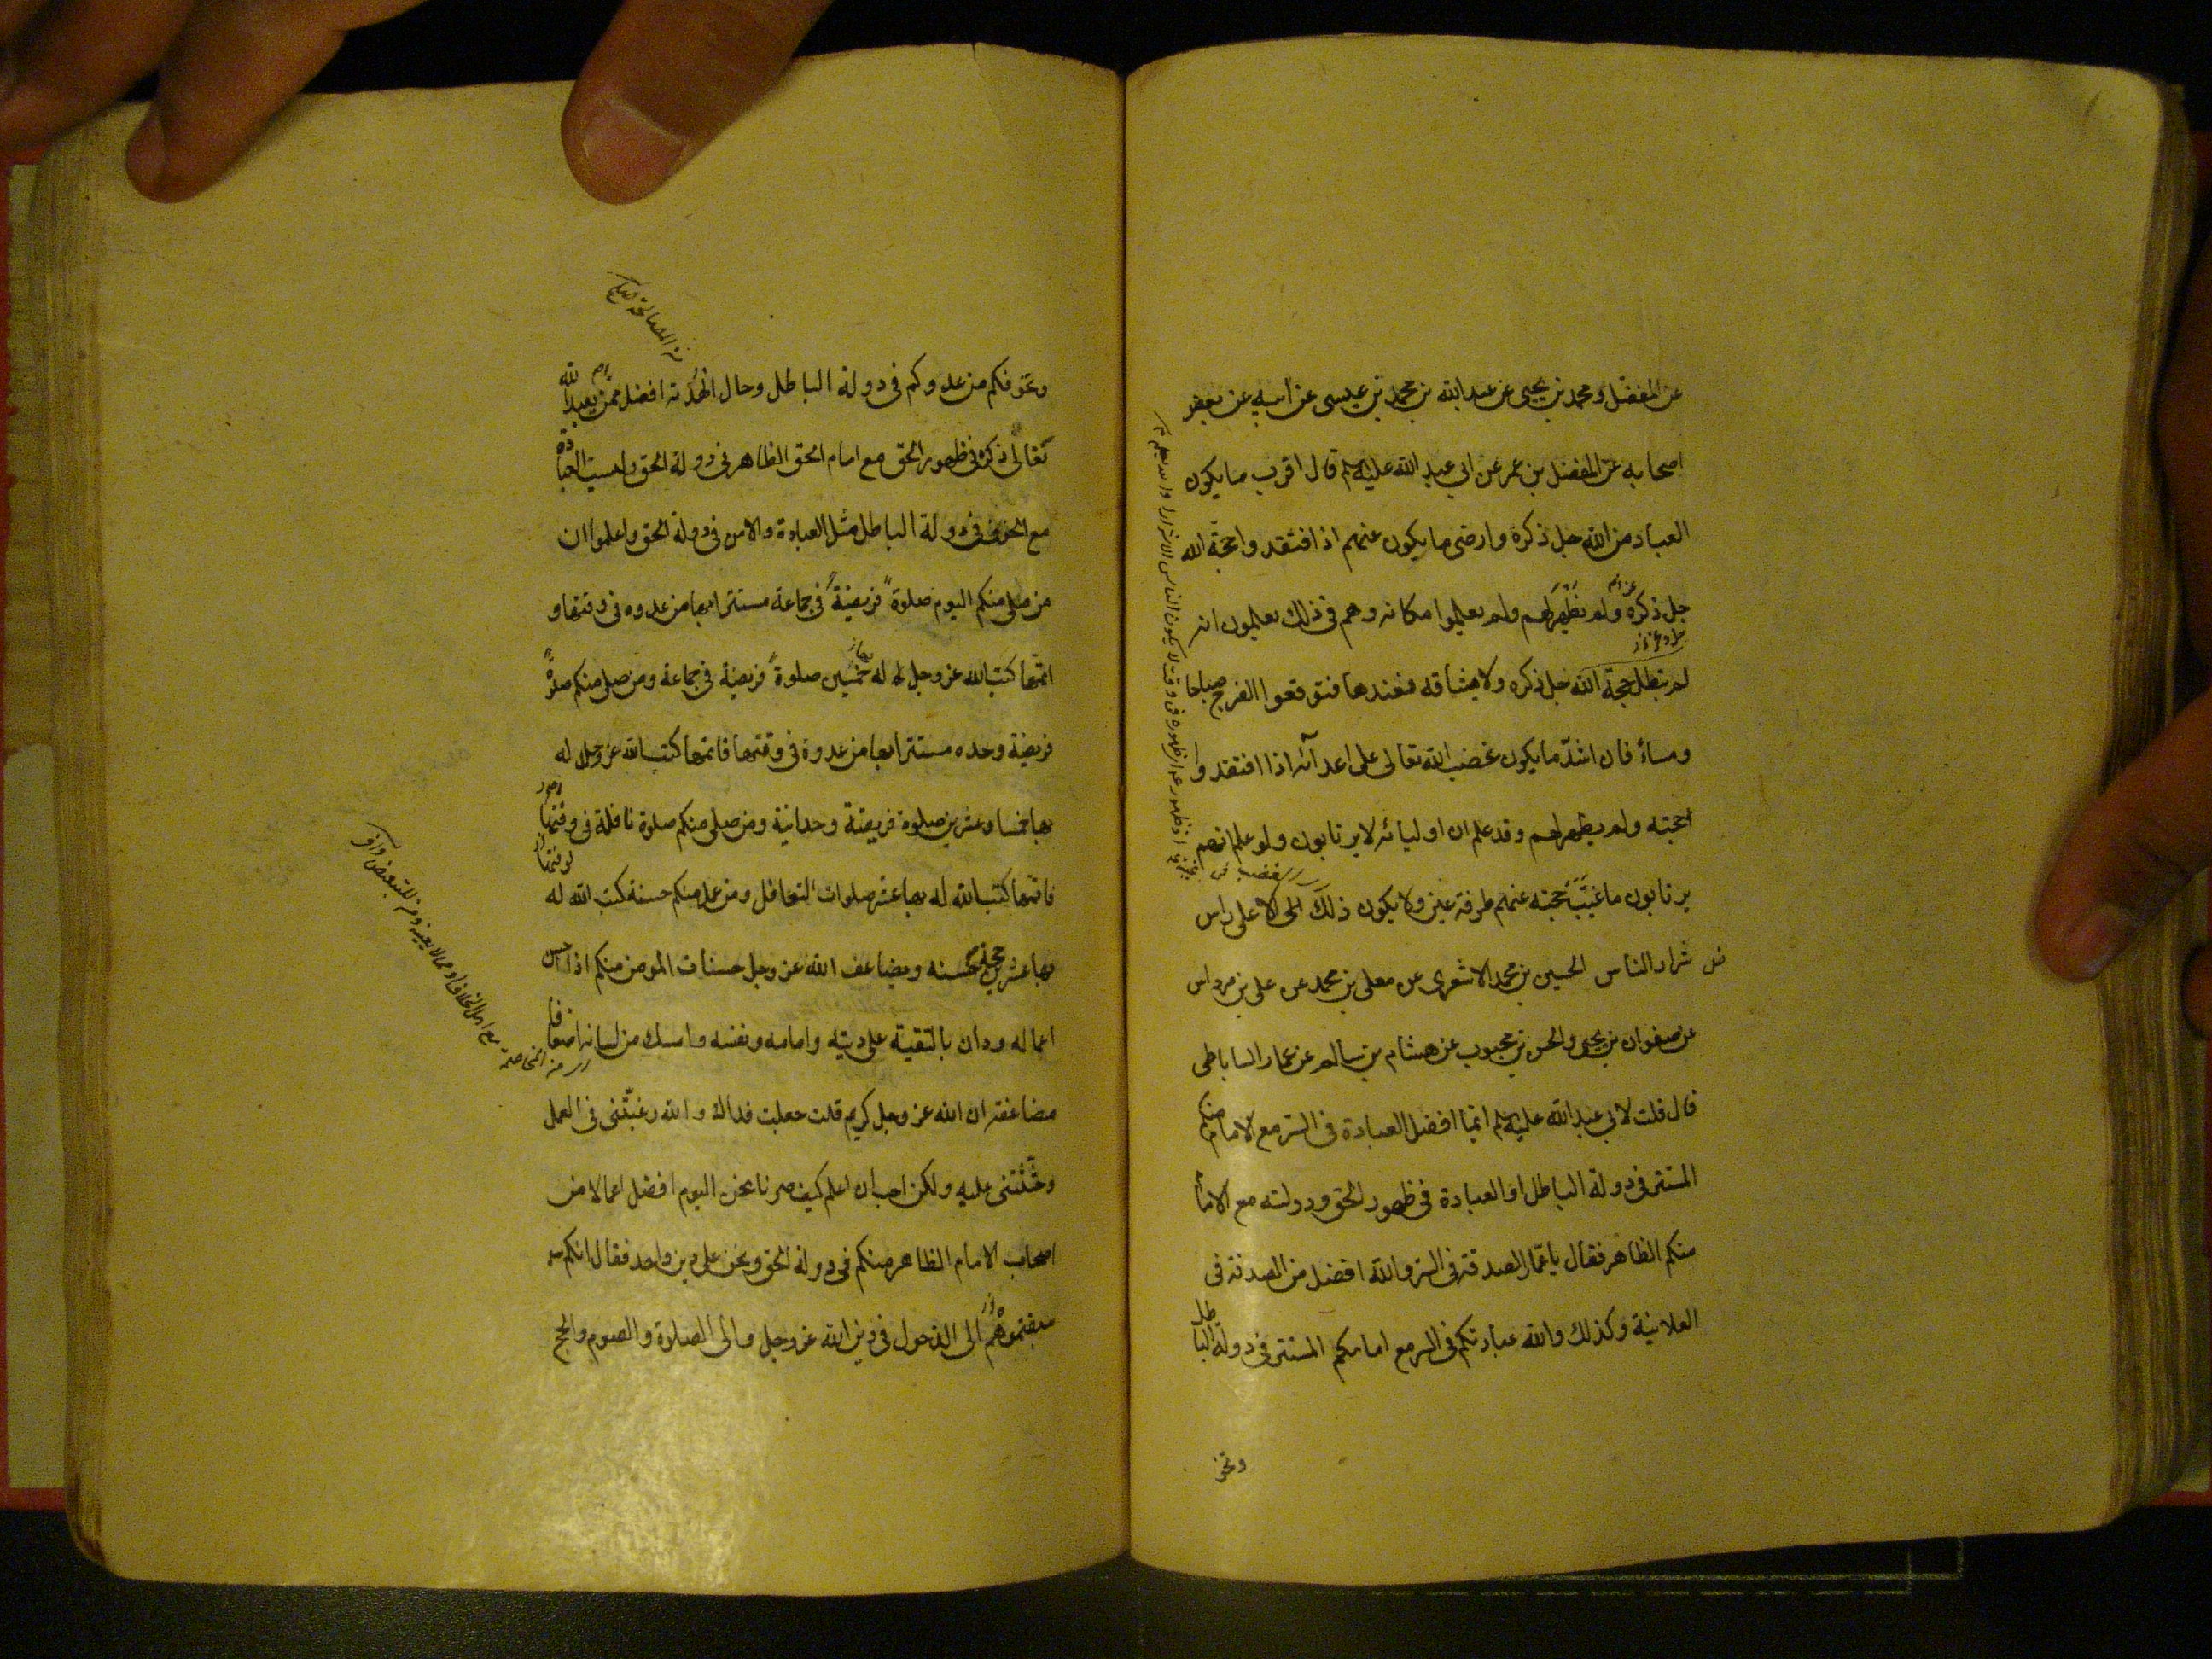 عن المفضل ومحمد بن يحيى عن عبد الله بن محمد بن عيسى عن ابيه عن بعض
اصحابه عن المفضل بن عمر عن ابي عبد الله عليه السلم قال اقرب ما يكون
العباد من الله جل ذكره وارضى ما يكون عنهم اذا افتقدوا حجة الله
جل ذكره ولم يظهر لهم ولم يعلموا مكانه وهم في ذلك يعلمون انه
لم تبطل حجة الله جل ذكره ولا ميثاقه فعندها فتوقعوا الفرج صباحا
ومساء فان اشد ما يكون غضب الله تعالى على اعدآئه اذا افتقدوا
حجته ولم يظهر لهم وقد علم ان اوليائه لا يرتابون ولو علم انهم
يرتابون ما غيب حجته عنهم طرفة عين ولا يكون ذلك الا على راس
شرار الناس الحسين بن محمد الاشعرى عن معلى بن محمد عن على بن مرداس
عن صفوان بن يحيى والحسن بن محبوب عن هشام بن سالم عن عمار الساباطى
قال قلت لابي عبد الله عليه السلم ايما افضل العبادة فى السر مع الامام منكم
المستتر فى دولة الباطل او العبادة فى ظهور الحق ودولته مع الامام
منكم الظاهر فقال يا عمار الصدقة فى السر والله افضل من الصدقة فى
العلانية وكذلك والله عبادتكم فى السر مع امامكم المستتر فى دولة الباطل
وتخو
وتخوفكم من عدوكم فى دولة الباطل وحال الهدنة افضل ممن يعبد الله
تعالى ذكره فى ظهور الحق مع امام الحق الظاهر فى دولة الحق وليست العبادة
مع الخوف فى دولة الباطل مثل العبادة والامن فى دولة الحق واعلموا ان
من صلى منكم اليوم صلوة فريضة فى جماعة مستترا بها من عدوه فى وقتها و
اتمها كتب الله عز وجل له خمسين صلوة فريضة فى جماعة ومن صلى منكم صلوة
فريضة وحده مستترا بها من عدوه فى وقتها فاتمها كتب الله عز وجل له
بها خمسا وعشرين صلوة فريضة وحدانية ومن صلى منكم صلوة نافلة فى وقتها
فاتمها كتب الله له بها عشر صلوات نوافل ومن عمل منكم حسنة كتب الله له
بها عشرين حسنة ويضاعف الله عز وجل حسنات المومن منكم اذا احسن
اعماله ودان بالتقية على دينه وامامه ونفسه وامسك من لسانه اضعافا
مضاعفة ان الله عز وجل كريم قلت جعلت فداك والله رغبتنى فى العمل
وحثثتنى عليه ولكن احب ان اعلم كيف صرنا نحن اليوم افضل اعمالا من
اصحاب الامام الظاهر منكم فى دولة الحق ونحن على دين واحد فقال انكم
سبقتموهم الى الدخول فى دين الله عز وجل والى الصلوة والصوم والحج